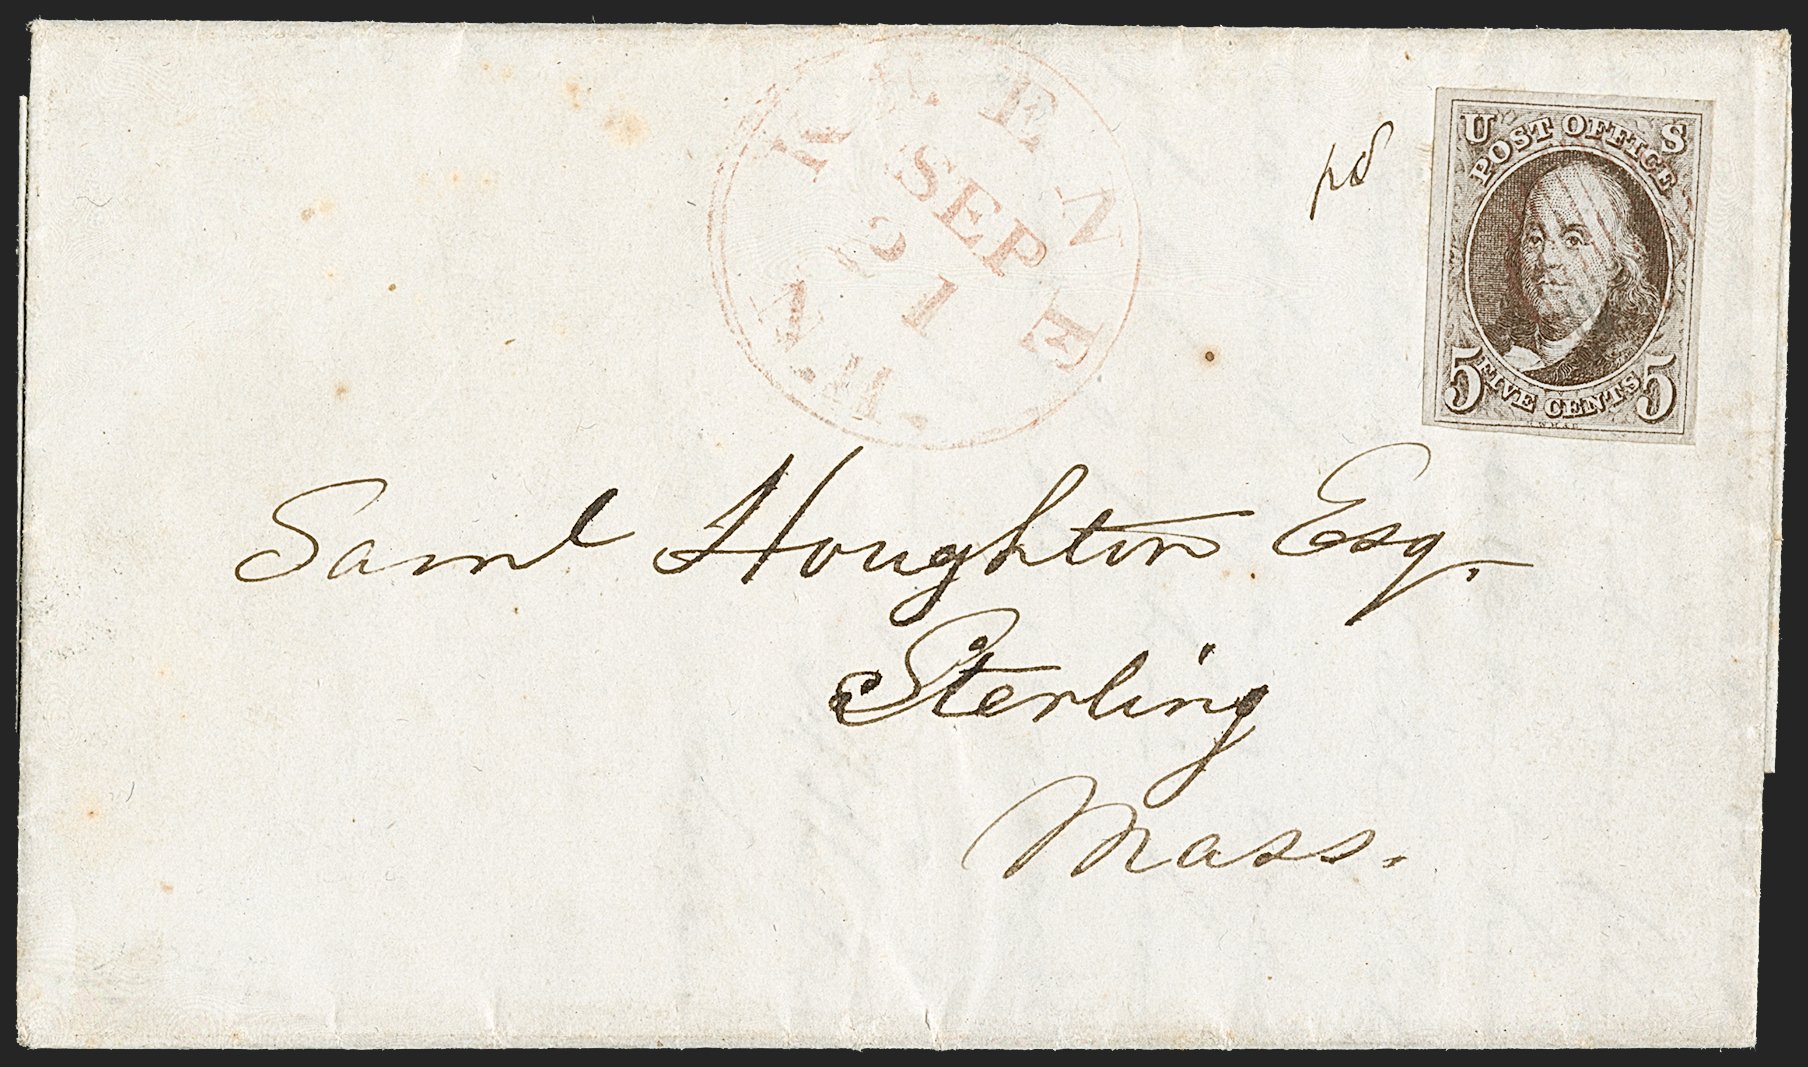 KEENE
SEP
21
N.H.
pd
U S
POST OFFICE
5 FIVE CENTS 5
R.W.H.&E.
Saml Houghton Esq.
Sterling
Mass.